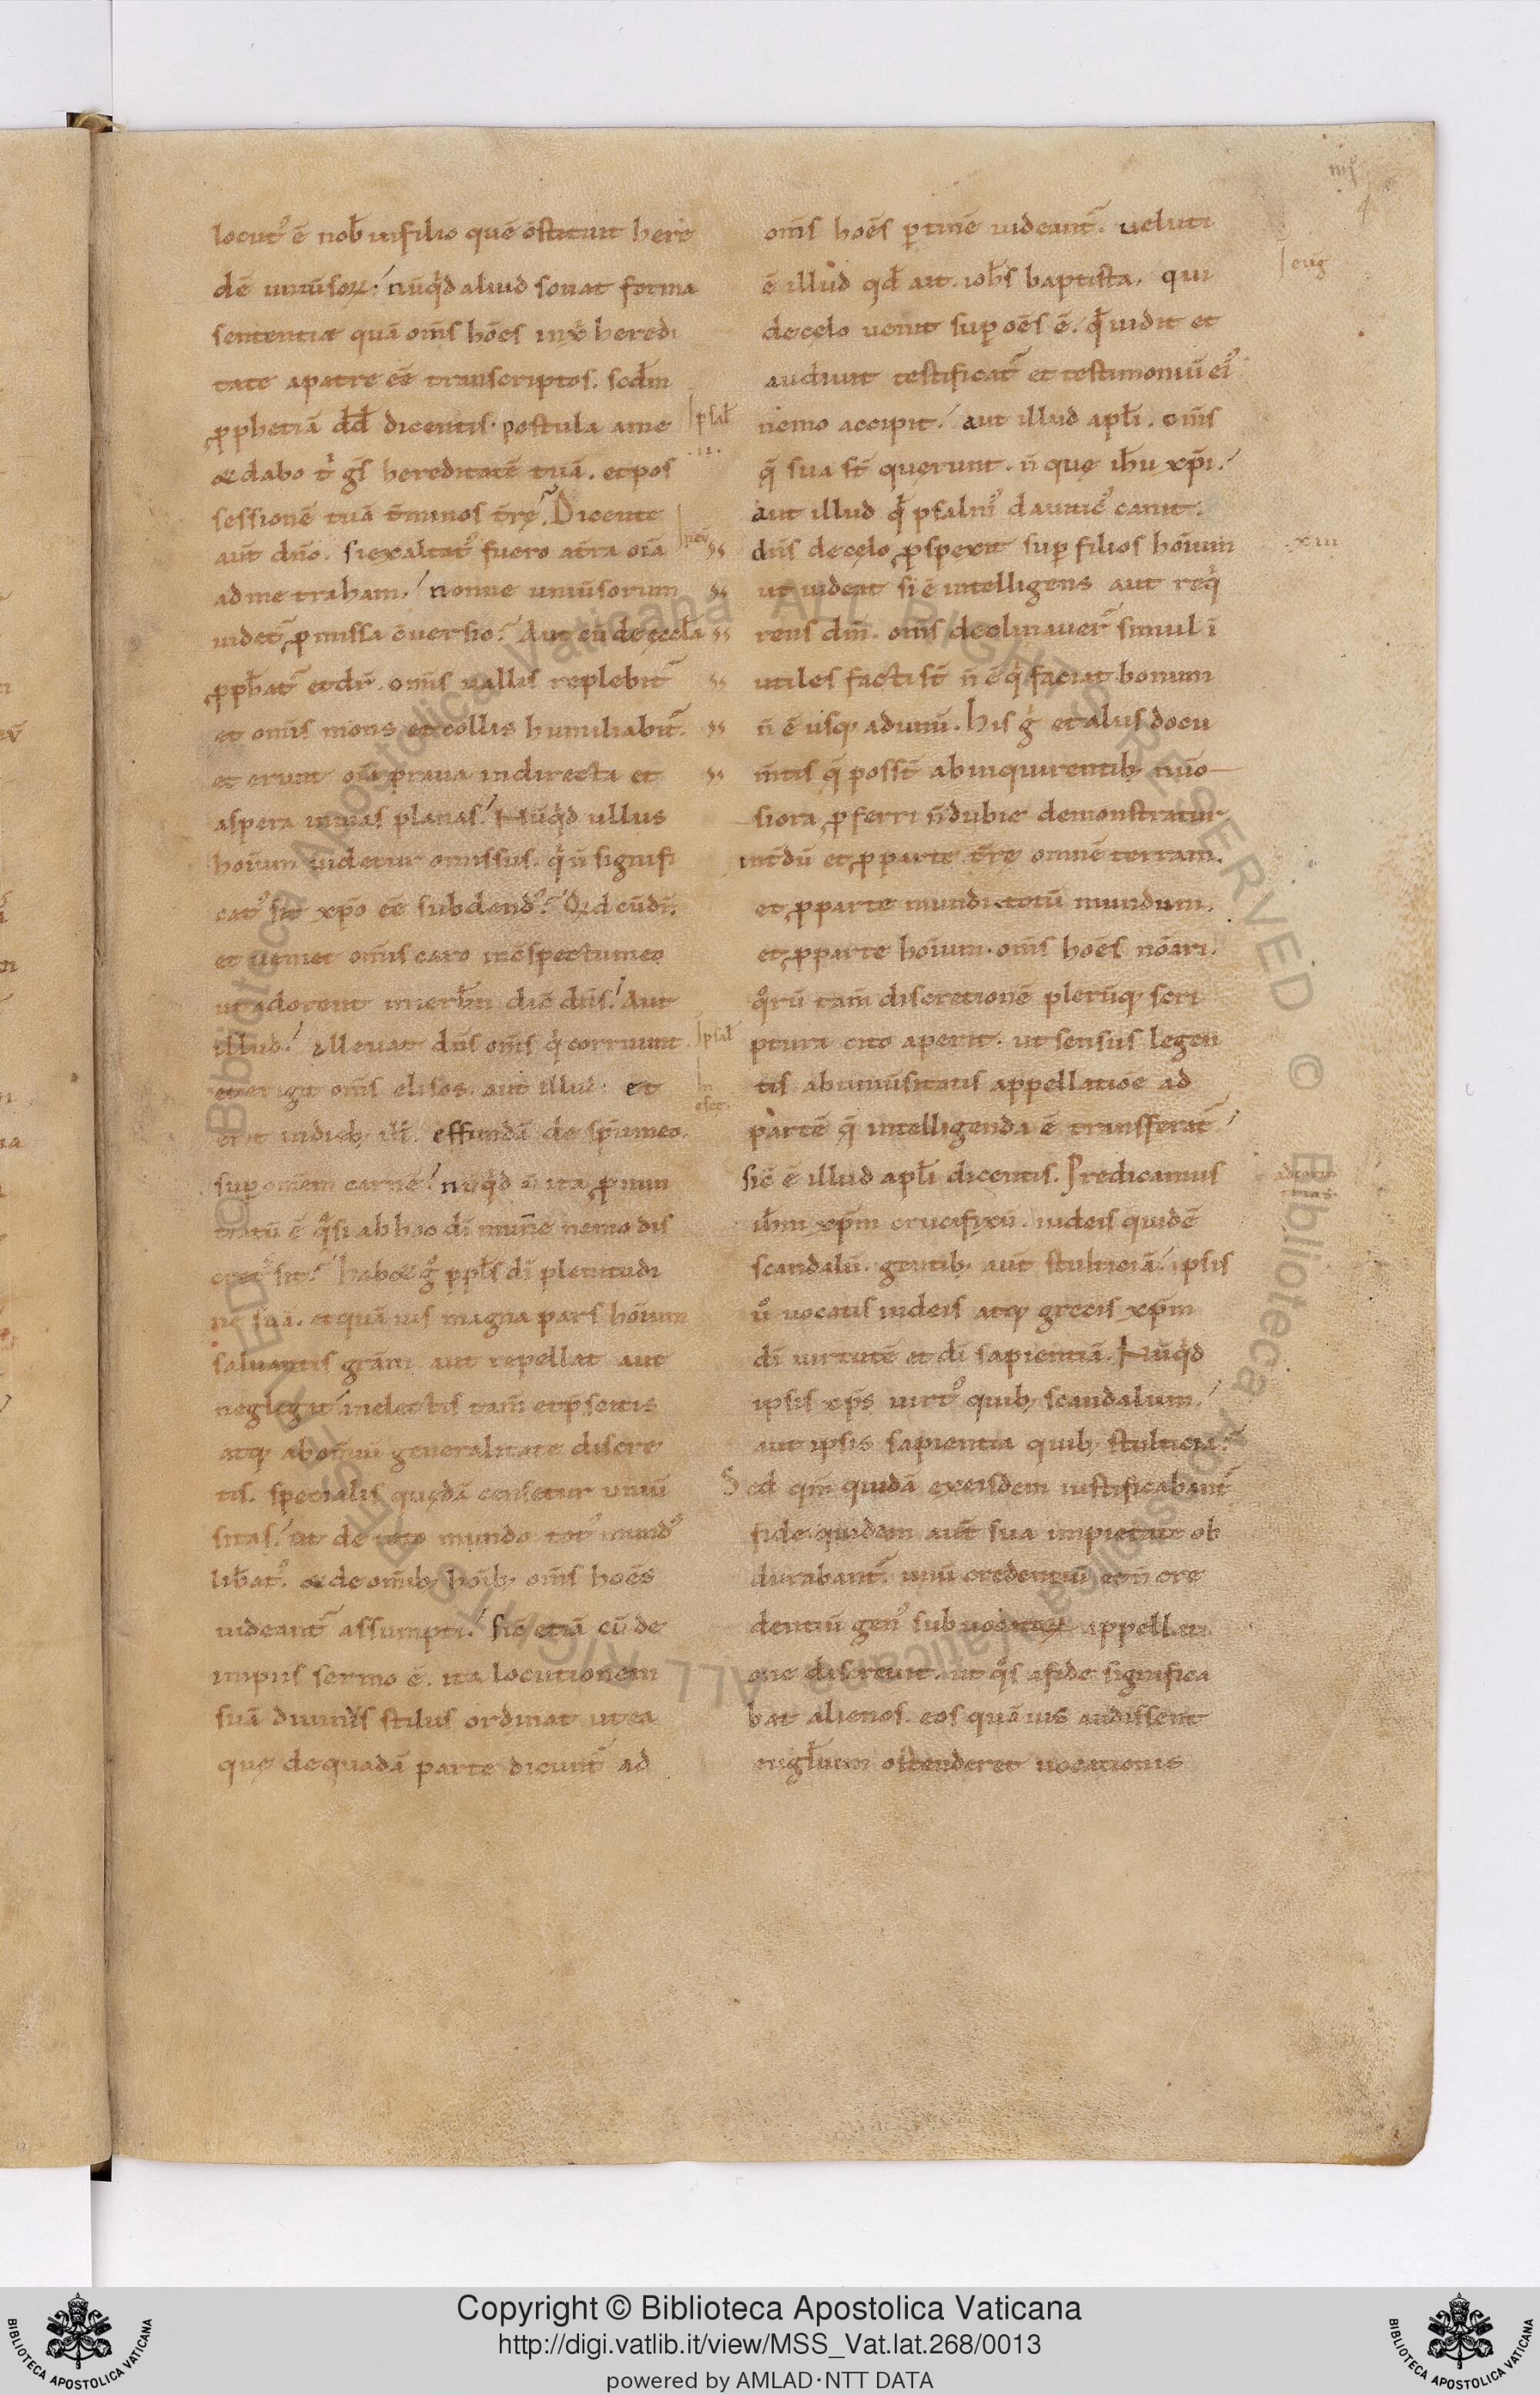 locut᾽ ē nob̄ in filio quē ɔ̄stituit here
dē uniūsoꝝ. nūqͥd aliud sonat forma
sententiæ quā om̄s hōes in xp̄i heredi
tate a patre ēē transcriptos. scd̄m
ꝓphetiā dd̄ dicentis. postula a me
& dabo tͥ gs̄ hereditatē tuā. et pos
sessionē tuā t̄minos t̄rę. Dicente
aut̄ dn̄o. si exaltat᾽ fuero at̄ra oīa
ad me traham. nonne uniūsorum
uidet᷑ ꝓmissa ɔ̄uersio. Aut cū de ęccl̄a
ꝓph̄at᷑ et dr̄. om̄is uallis replebit᷑
et om̄is mons et collis humiliabit᷑.
et erunt oīa praua in directa et
aspera in uias planas. Nūqͥd ullus
hoīum uidetur omissus. qͥ n̄ signifi
cat᾽ sit xp̄o ēē subdend᾽. Qd̄ cū dr̄.
et ueniet om̄is caro in ɔ̄spectu meo
ut adorent in ierl̄m dic̄ dn̄s. Aut
illud. alleuat dn̄s om̄s qͥ corruunt.
et erigit om̄s elisos. aut illud. et
erit in dieb; ill̄. effundā de sp̄u meo
suꝑ omēm carnē. nūqͥd n̄ ita ꝓnun
tiatū ē qͣsi ab hoc dī mun̄e nemo dis
cret᾽ sit. Hab& gͦ ppl̄s dī plenitudi
nē suā. et quāuis magna pars hoīum
saluantis grām aut repellat aut
neglegat. in electis tam̄ et p̄scitis
atq; ab om̄iū generalitate discre
tis. specialis quędā censetur uniū
sitas. ut de toto mundo tot᾽ mund᾽
lib̄at᾽. & de om̄ib; hoīb; om̄s hoēs
uideant᷑ assumpti. Sic̄ etiā cū de
impiis sermo ē. ita locutionem
suā diuin᾽ stilus ordinat ut ea
quę de quadā parte dicunt᷑ ad
psal̄
.ii.
psal̄
om̄s hoēs ꝑtinē uideant᷑. ueluti
ē illud qd̄ ait. ioh̄s baptista. qui
de cęlo uenit suꝑ oēs ē. qd̄ uidit et
audiuit testificat᷑ et testimoniū ei᾽
nemo accipit. aut illud apl̄i. om̄s
q̄ sua st̄ quęrunt. n̄ quę ih̄u xp̄i.
aut illud qd̄ psalm᾽ dauitic᾽ canit.
dn̄s de cęlo ꝓspexit suꝑ filios hoīum
ut uideat si ē intelligens aut reqͥ
rens dm̄. om̄s declinauer᷑ simul ī
utiles facti st̄ n̄ ē qͥ faciat bonum
n̄ ē usq; ad unū. His gͥ et aliis docu
m̄tis q̄ posst̄ ab inquirentib; nūo
siora ꝓferri n̄ dubie demonstratur
int̄dū et ꝓ parte t̄rę omnē terram.
et ꝓ parte mundi totū mundum.
et ꝓ parte hoīum. om̄s hoēs nōari.
qͦrū tam̄ discretionē plerūq; scri
ptura cito aperit. ut sensus legen
tis ab uniūsitatis appellatiōe ad
partē q̄ intelligenda ē transferat᷑
sic̄ ē illud apl̄i dicentis. Predicamus
ih̄m xp̄m crucifixū. iudeis quidē
scandalū. gentib; aut̄ stulticiā. ipsis
uͦ uocatis iudeis atq; grecis xp̄m
dī uirtutē et dī sapientiā. Nūqͥd
ipsis xp̄s uirt᾽ quib; scandalum.
aut ipsis sapientia quib; stulticia.
Sed qm̄ quidā ex eisdem iustificabant᷑
fide. quidem aut̄ sua impietate ob
durabant᷑. unū credentiū et n̄ cre
dentiū gen᾽ sub uocatoꝝ appellati
one discreuit. ut qͦs a fide significa
bat alienos. eos quāuis audissent
eugl̄ium ostenderet uocationis
eug̅
.xiii.
4